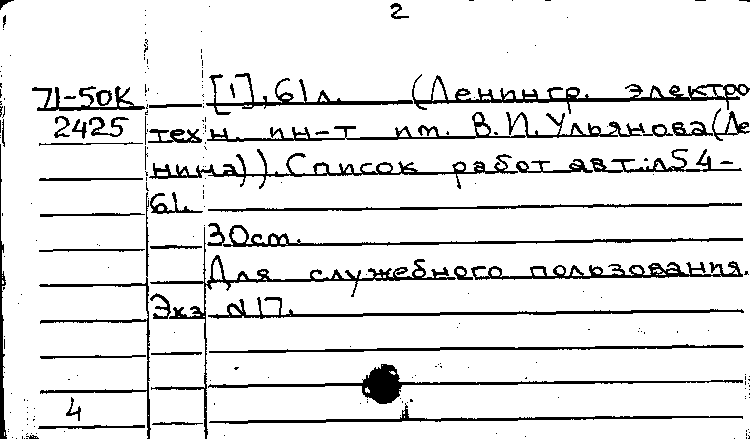 2
71-50К [1], 61л. (Ленингр. электро
2425 техн. ин-т им. В.И. Ульянова(Ле
нина)). Список работ авт.: л54-
61.
30cm.
Для служебного пользования.
Экз N17.
4